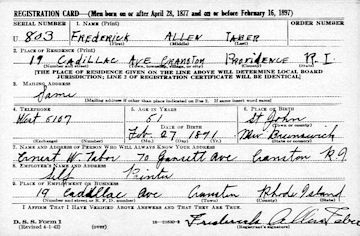 REGISTRATION CARD—(Men born on or after April 28, 1877 and on or before February 16, 1897)
SERIAL NUMBER
1. NAME (Print)
ORDER NUMBER
U 803 FREDERICK ALLEN TABER
(First) (Middle) (Last)
2. PLACE OF RESIDENCE (Print)
19 CADILLAC AVE CRANSTON PROVIDENCE R.I.
(Number and street) (Town, township, village, or city) (County) (State)
[THE PLACE OF RESIDENCE GIVEN ON THE LINE ABOVE WILL DETERMINE LOCAL BOARD
JURISDICTION; LINE 2 OF REGISTRATION CERTIFICATE WILL BE IDENTICAL]
3. MAILING ADDRESS
Same
[Mailing address if other than place indicated on line 2. If same insert word same]
4. TELEPHONE
5. AGE IN YEARS
6. PLACE OF BIRTH
West 5107
51
St John
DATE OF BIRTH
(Town or county)
Feb 27 1891
New Brunswick
(Exchange) (Number)
(Mo.) (Day) (Yr.)
(State or country)
7. NAME AND ADDRESS OF PERSON WHO WILL ALWAYS KNOW YOUR ADDRESS
Ernest W. Tabor 70 Cranston R.I.
8. EMPLOYER'S NAME AND ADDRESS
Self Printer
9. PLACE OF EMPLOYMENT OR BUSINESS
19 Cadillac Ave Cranston Rhode Island
(Number and street or R. F. D. number) (Town) (County) (State)
I AFFIRM THAT I HAVE VERIFIED ABOVE ANSWERS AND THAT THEY ARE TRUE.
D. S. S. Form 1
(Revised 4-1-42) (over)
Frederick Allen Taber
(Registrant's signature)